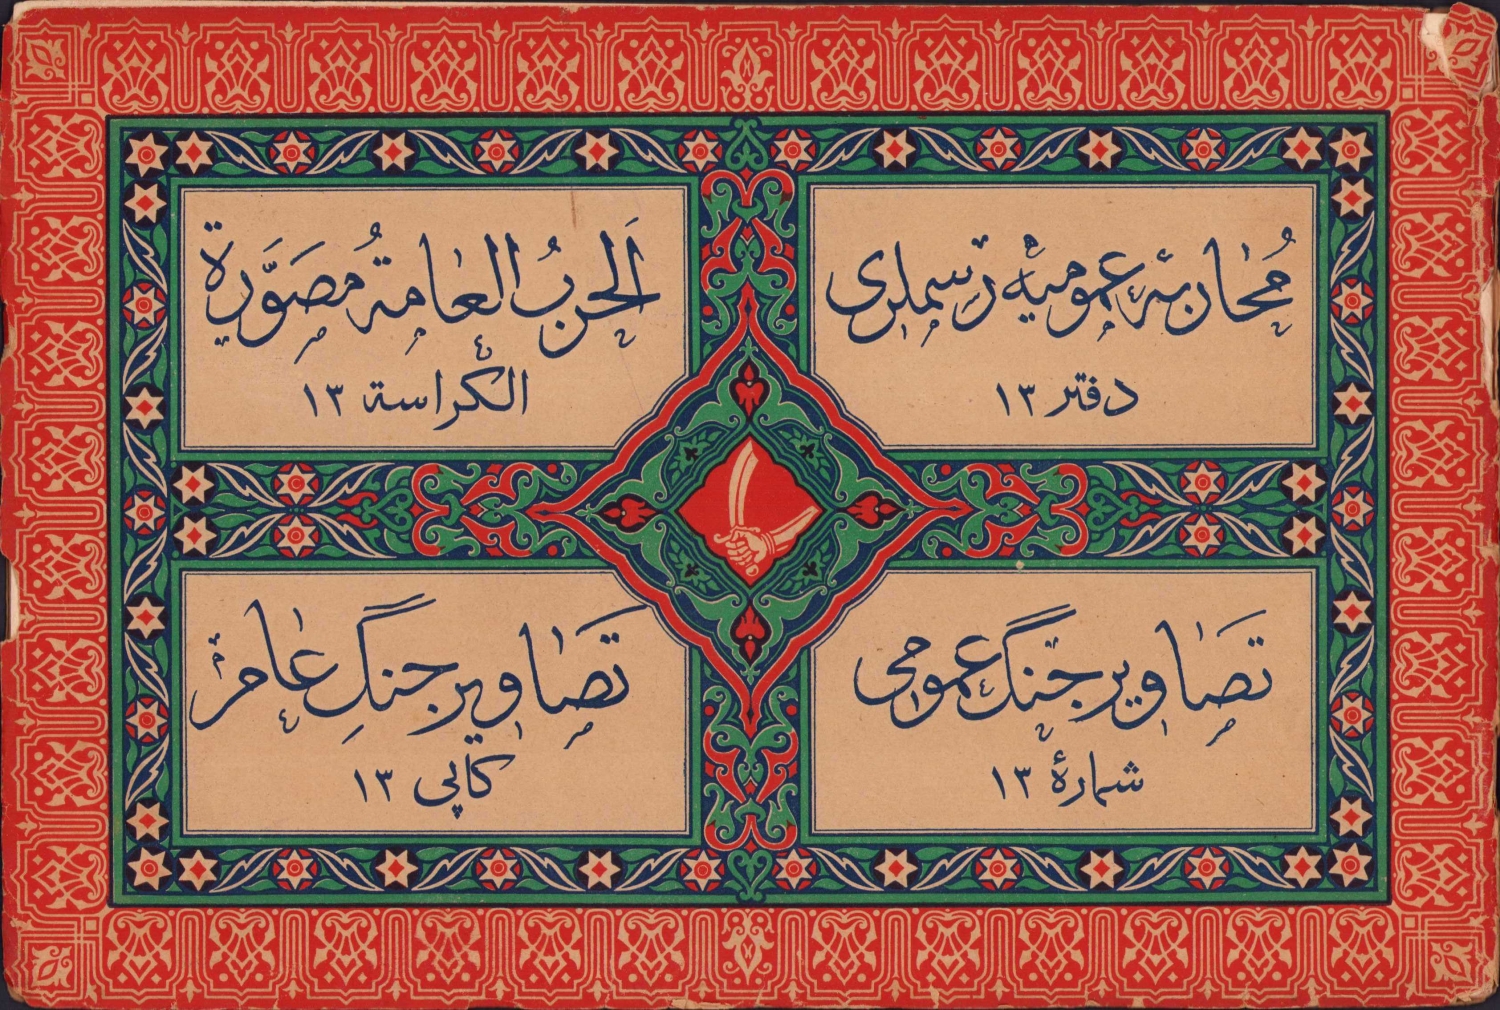 مُحاربهٔ عموميه رسملرى
دفتر ١٣
اَلحربُ العامة مُصَوَّرة
الكراسة ١٣
تصاوير جنگ عمومى
شمارهٔ ١٣
تصاوير جنگِ عام
كاپى ١٣